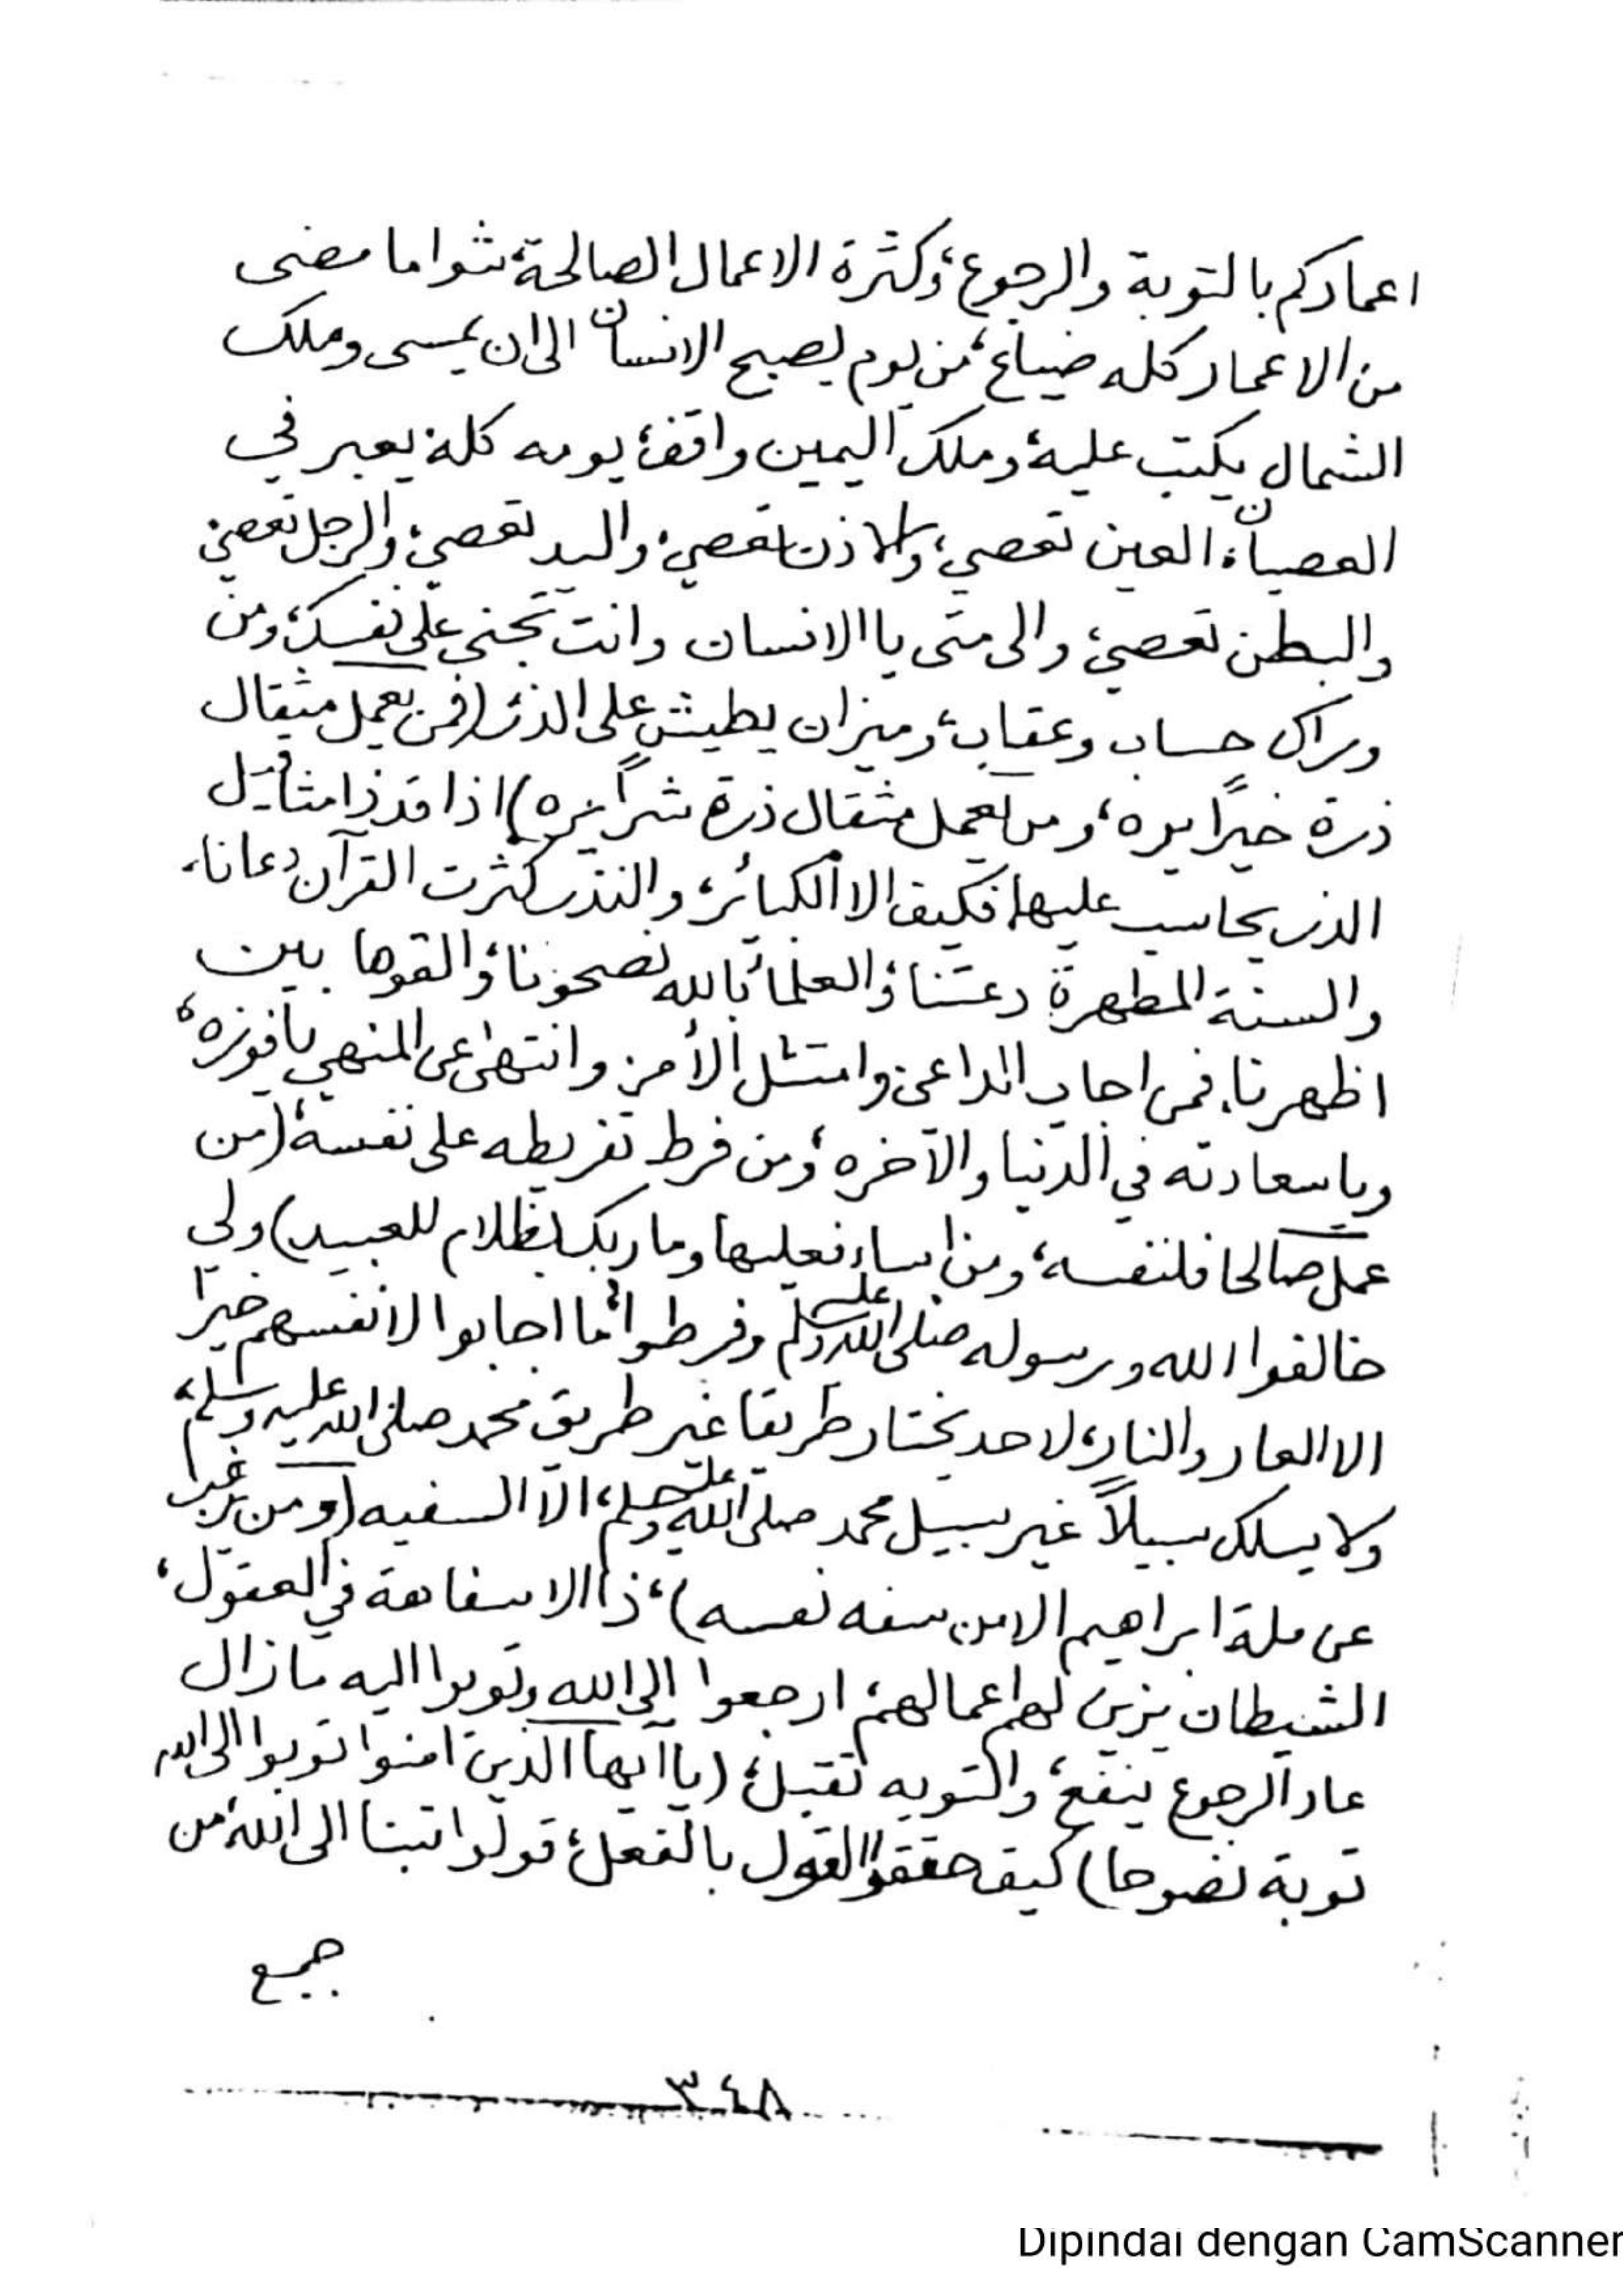 اعماركم بالتوبة والرجوع، وكثرة الاعمال الصالحة، شوا ما مضى
من الاعمار كله ضياع، من يوم يصبح الانسان الى ان يمسى وملك
الشمال يكتب عليه، وملك اليمين واقف، يومه كله يعبر في
العصيان، العين تعصي، والاذن تعصي، واليد تعصي، والرجل تعصي
والبطن تعصي، والى متى يا الانسان وانت تجني على نفسك، ومن
وراك حساب وعقاب، وميزان يطيش على الذر (فمن يعمل مثقال
ذرة خيرًا يره، ومن يعمل مثقال ذرة شراً يره) اذا قد ذا مثاقيل
الذر يحاسب عليها، فكيف الا الكبائر، والنذر كثرت القرآن دعانا،
والسنة المطهرة دعتنا، والعلماء بالله نصحونا، والقوها بين
اظهرنا، فمن اجاب الداعي وامتثل الأمر وانتهى عن المنهي يا فوزه،
ويا سعادته في الدنيا والآخره، ومن فرط تفريطه على نفسه، (من
عمل صالحا فلنفسه، ومن اساء فعليها وما ربك بظلام للعبيد) ولي
خالفوا الله ورسوله صلى الله عليه وسلم وفرطوا، ما اجابوا لانفسهم خيرًا
الا العار والنار، لاحد يختار طريقا غير طريق محمد صلى الله عليه وسلم،
ولا يسلك سبيلاً غير سبيل محمد صلى الله عليه وسلم، الّا السفيه (ومن يرغب
عن ملة ابراهيم الا من سفه نفسه)، ذا الا سفاهة في العقول،
الشيطان يزين لهم اعمالهم، ارجعوا الى الله وتوبوا اليه ما زال
عاد الرجوع ينفع، والتوبه تقبل، (يا ايها الذين آمنوا توبوا الى الله
توبة نصوحا) كيف حققوا القول بالفعل، قولوا تبنا الى الله، من
جميع
٣٤٨
Dipindai dengan CamScanner